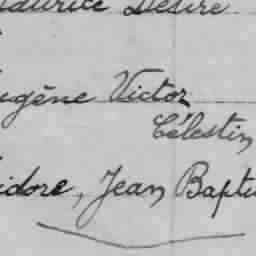 Désiré
Eugène Victor
Célestin
idore, Jean Bapti